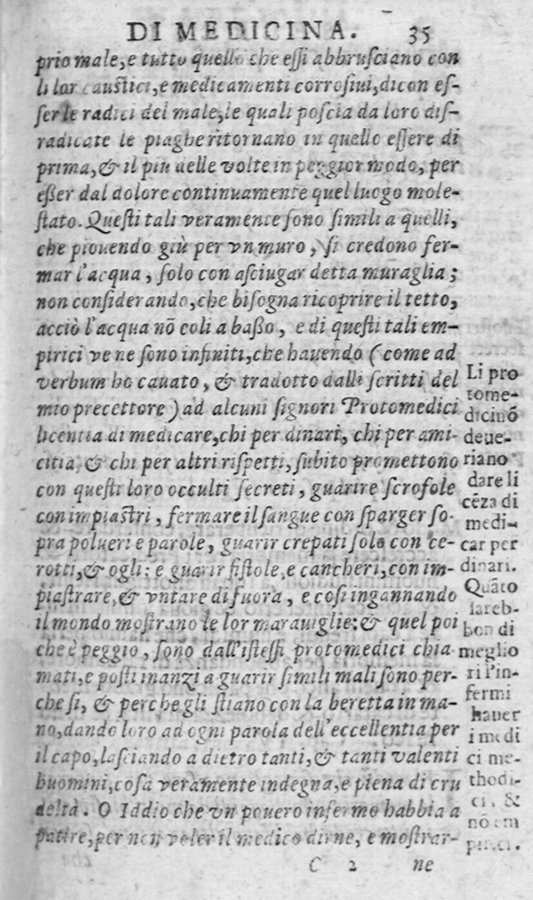 DI MEDICINA. 35
prio male, e tutto quello che eſſi abbruſciano con
li lor cauſtici, e medicamenti corroſiui, dicon eſ-
ſer le radici del male, le quali poſcia da loro diſ-
radicate le piaghe ritornano in quello eſſere di
prima, & il piu delle volte in peggior modo, per
eßer dal dolore continuamente quel luogo mole-
ſtato. Queſti tali veramente ſono ſimili a quelli,
che piouendo giù per vn muro, ſi credono fer-
mar l'acqua, ſolo con aſciugar detta muraglia;
non conſiderando, che biſogna ricoprire il tetto,
acciò l'acqua nõ coli a baßo, e di queſti tali em-
pirici ve ne ſono infiniti, che hauendo (come ad
verbum ho cauato, & tradotto dalli ſcritti del
mio precettore) ad alcuni ſignori Protomedici
licentia di medicare, chi per dinari, chi per ami-
citia, & chi per altri riſpetti, ſubito promettono
con queſti loro occulti ſecreti, guarire ſcrofole
con impiaſtri, fermare il ſangue con ſparger ſo-
pra polueri e parole, guarir crepati ſolo con ce-
rotti, & ogli: e guarir fiſtole, e cancheri, con im-
piaſtrare, & vntare di fuora, e coſi ingannando
il mondo moſtrano le lor marauiglie; & quel poi
che è peggio, ſono dall'iſteſſi protomedici chia-
mati, e poſti inanzi a guarir ſimili mali ſono per-
che ſi, & perche gli ſtiano con la beretta in ma-
no, dando loro ad ogni parola dell'eccellentia per
il capo, laſciando a dietro tanti, & tanti valenti
huomini, coſa veramente indegna, e piena di cru
deltà. O Iddio che vn pouero infermo habbia a
patire, per non voler il medico dirne, e moſtrar-
C 2 ne
Li pro
tome-
dicinõ
deue-
riano
dare li
cẽza di
medi-
car per
dinari.
Quãto
ſareb-
bon di
meglio
ri l'in-
fermi
hauer
i medi
ci me-
thodi-
ci, &
nõ em
pirici.